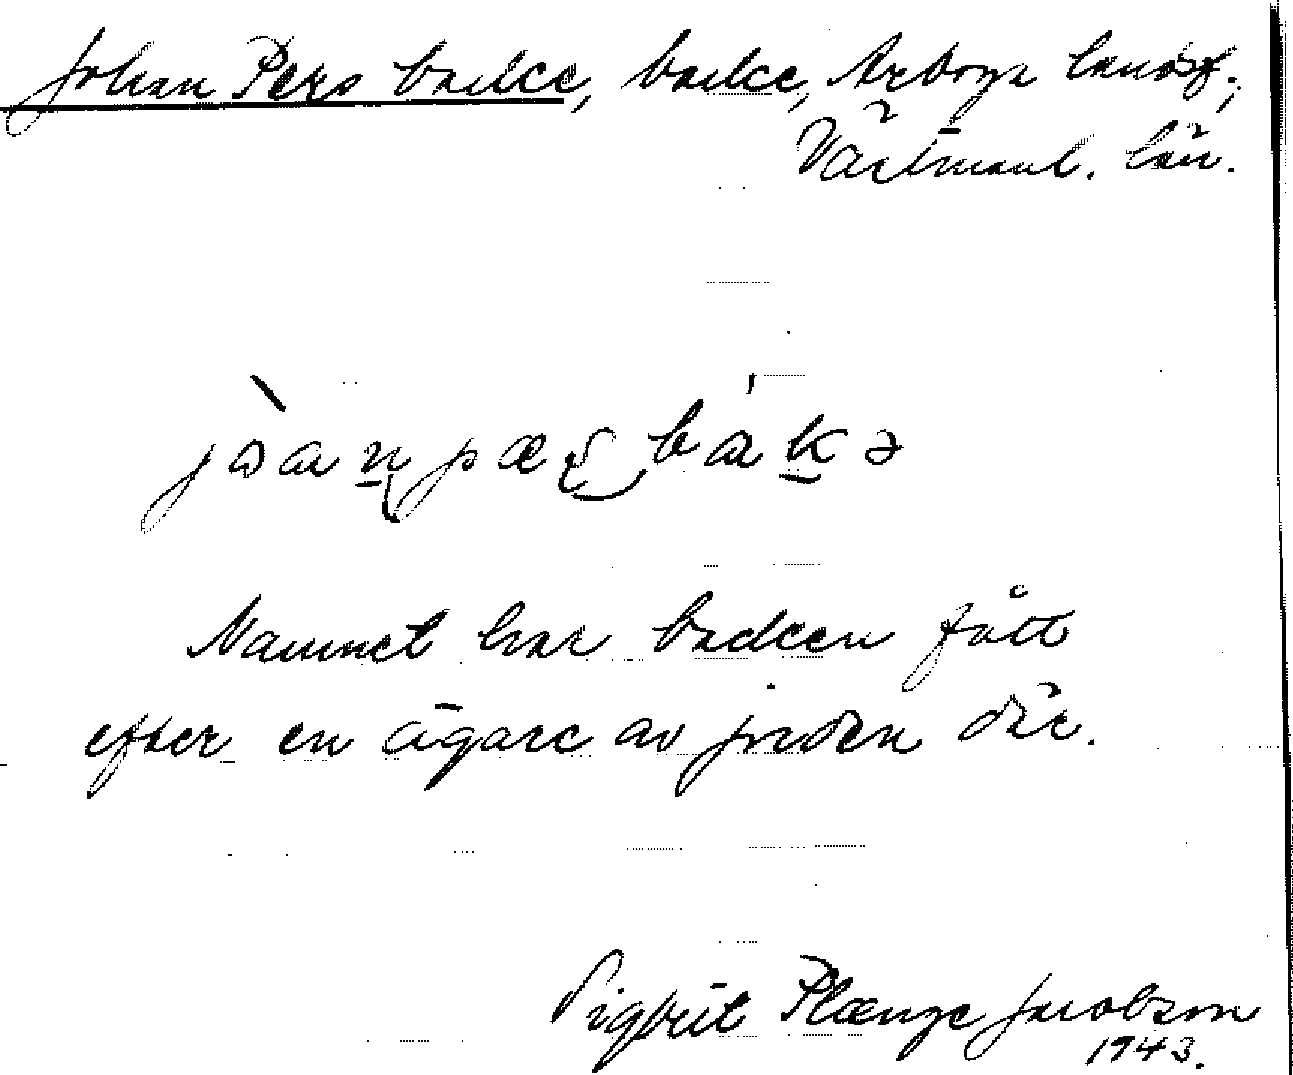 Johan Pers backe, backe, Arboga landsf.;
Västmanl. län.
Namnet har backen fått
efter en ägare av jorden där.
Sigbrit Plænge Jacobson
1943.